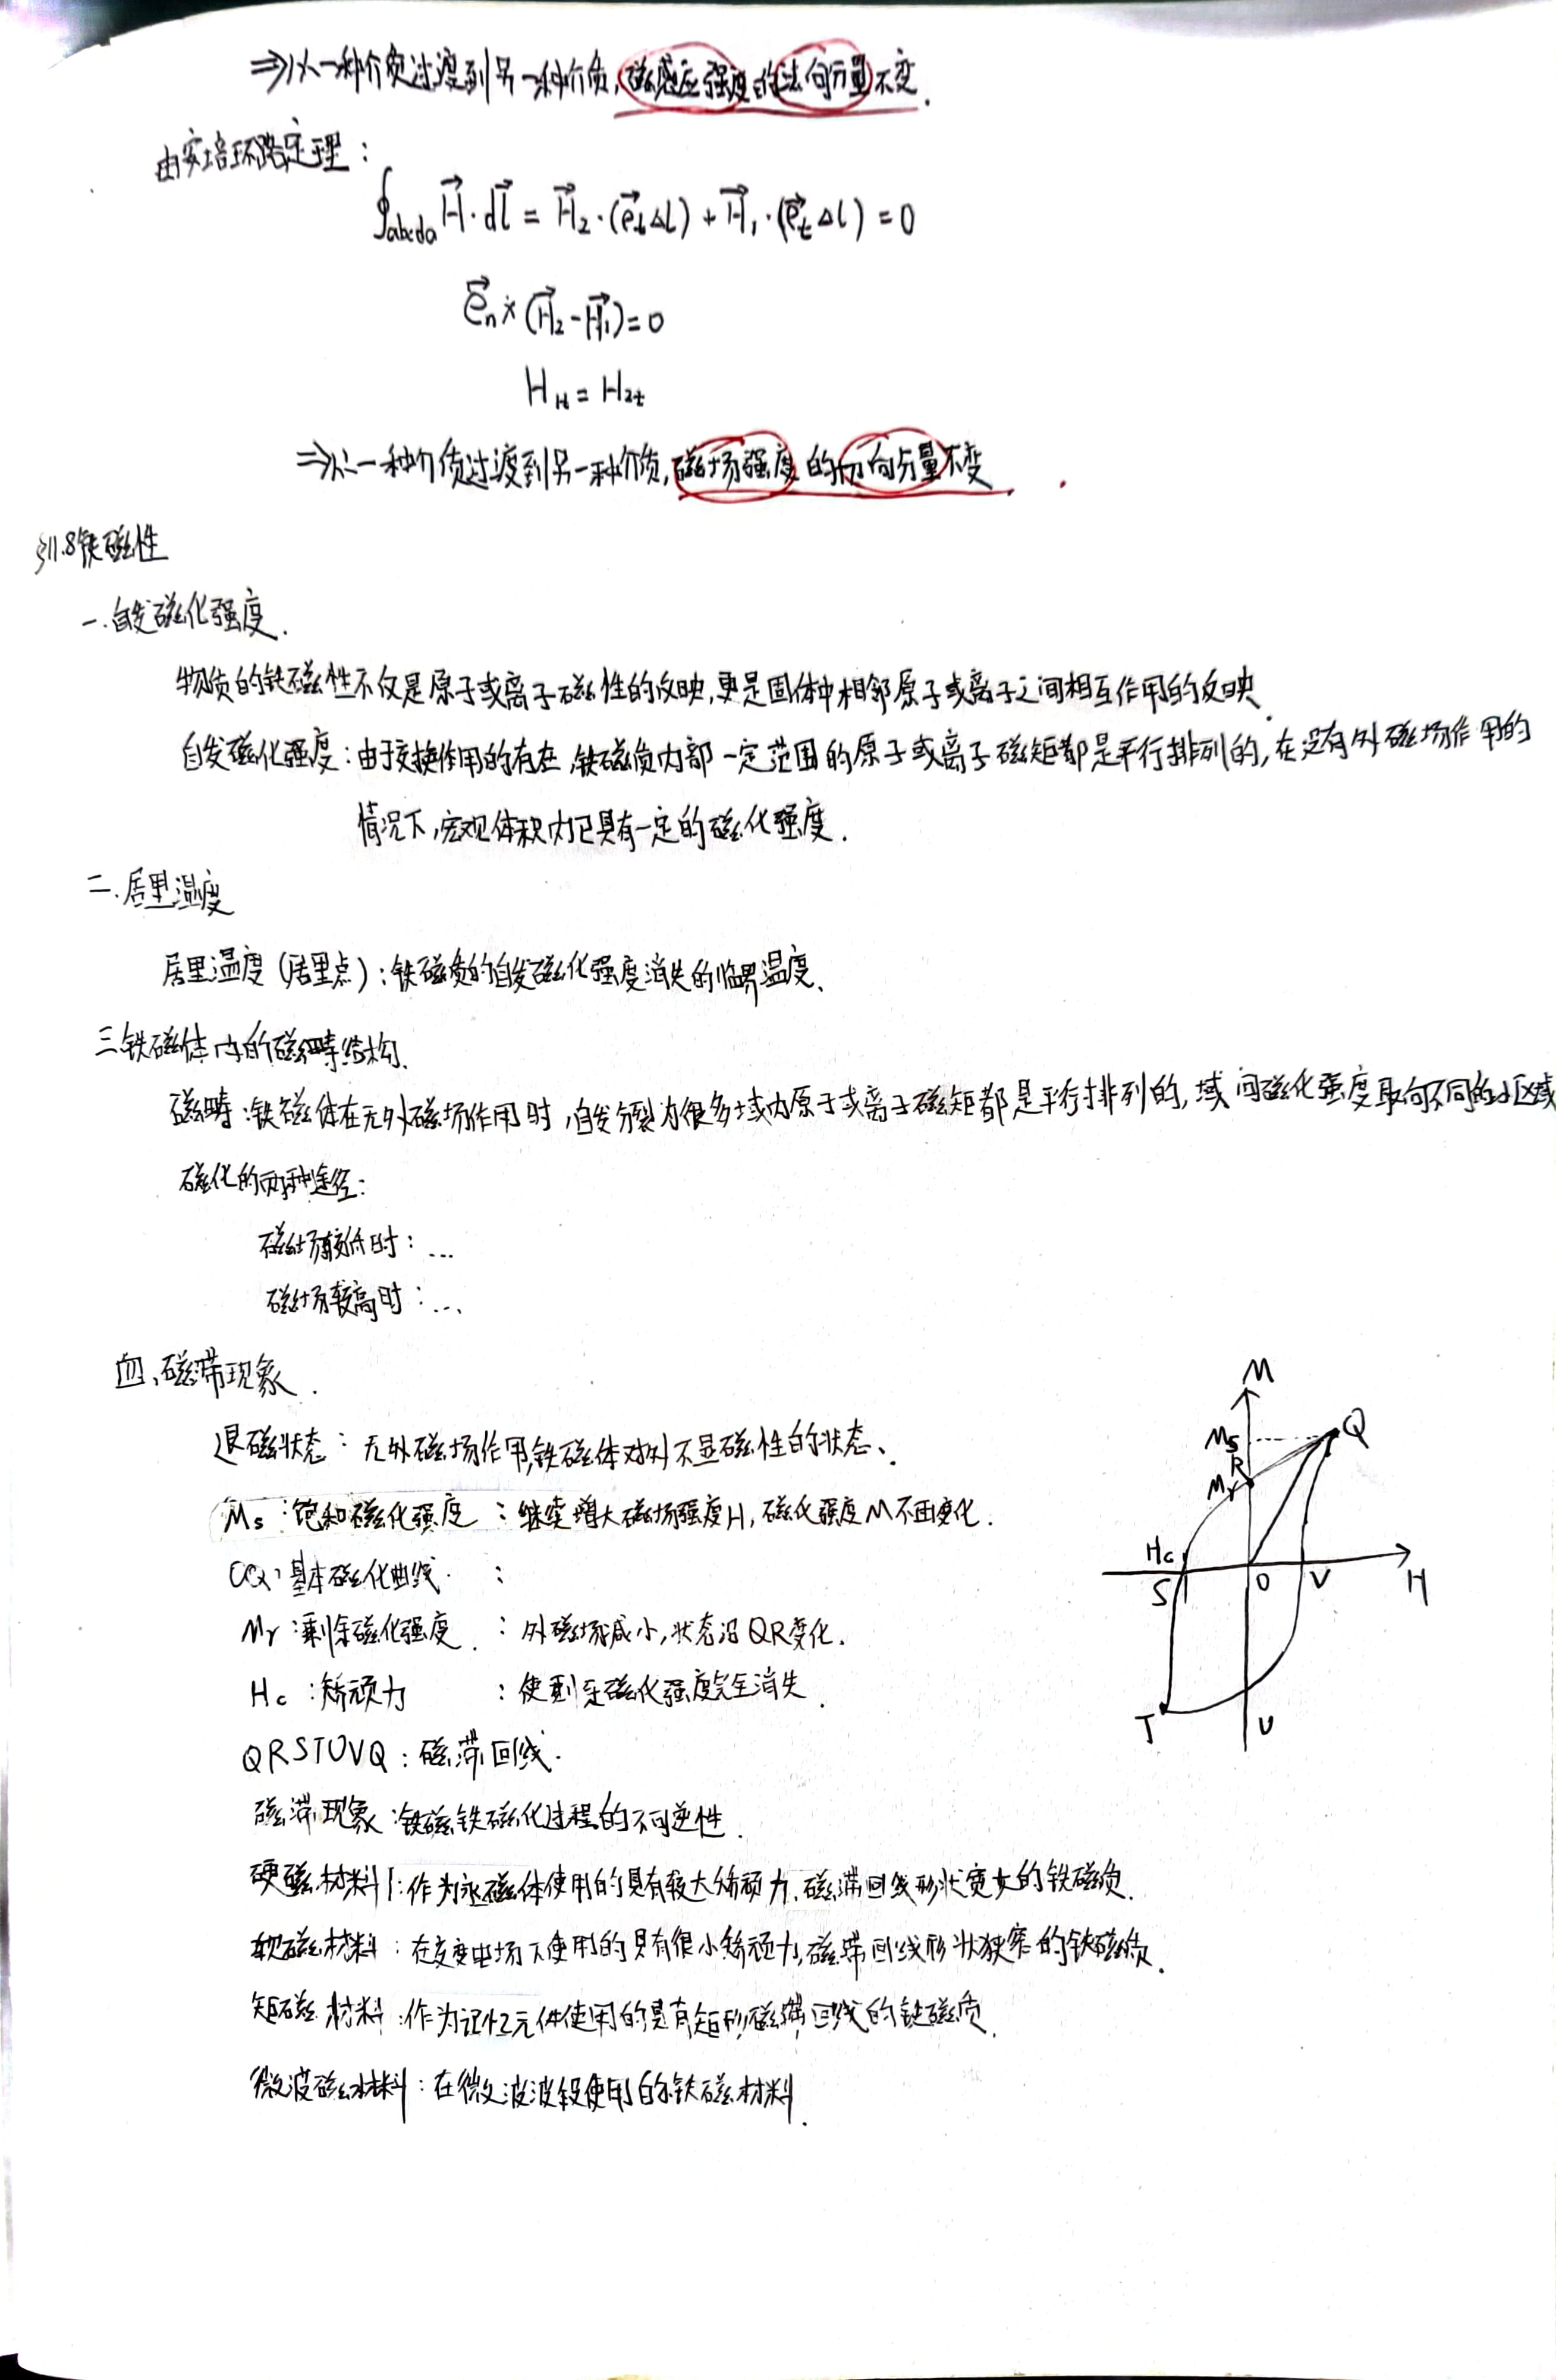 ⇒从一种介质过渡到另一种介质,磁感应强度的法向分量不变.
由安培环路定理:
∮abcda H⃗·dl⃗ = H⃗₂·(e⃗tΔl) + H⃗₁·(e⃗tΔl) = 0
e⃗n×(H⃗₂-H⃗₁)=0
H1t = H2t
⇒从一种介质过渡到另一种介质,磁场强度的切向分量不变
§11.8铁磁性
一.自发磁化强度.
物质的铁磁性不仅是原子或离子磁性的反映,更是固体中相邻原子或离子之间相互作用的反映.
自发磁化强度:由于交换作用的存在,铁磁质内部一定范围的原子或离子磁矩都是平行排列的,在没有外磁场作用的
情况下,宏观体积内已具有一定的磁化强度.
二.居里温度
居里温度(居里点):铁磁质的自发磁化强度消失的临界温度.
三铁磁体内的磁畴结构.
磁畴:铁磁体在无外磁场作用时,自发分裂为很多域内原子或离子磁矩都是平行排列的,域间磁化强度取向不同的小区域
磁化的两种途径:
磁场较低时:...
磁场较高时:...
四、磁滞现象.
退磁状态:无外磁场作用,铁磁体对外不显磁性的状态、
Ms:饱和磁化强度:继续增大磁场强度H,磁化强度M不再变化.
OQ:基本磁化曲线.:
Mr:剩余磁化强度.:外磁场减小,状态沿QR变化.
Hc:矫顽力:使剩余磁化强度完全消失.
QRSTUVQ:磁滞回线.
磁滞现象:铁磁铁磁化过程的不可逆性.
硬磁材料:作为永磁体使用的具有较大矫顽力,磁滞回线形状宽大的铁磁质.
软磁材料:在交变电场下使用的具有很小矫顽力,磁滞回线形状狭窄的铁磁质.
矩磁材料:作为记忆元件使用的具有矩形磁滞回线的铁磁质.
微波磁材料:在微波波段使用的铁磁材料.
M
Q
Ms
R
Mr
Hc
S
O
V
H
T
U